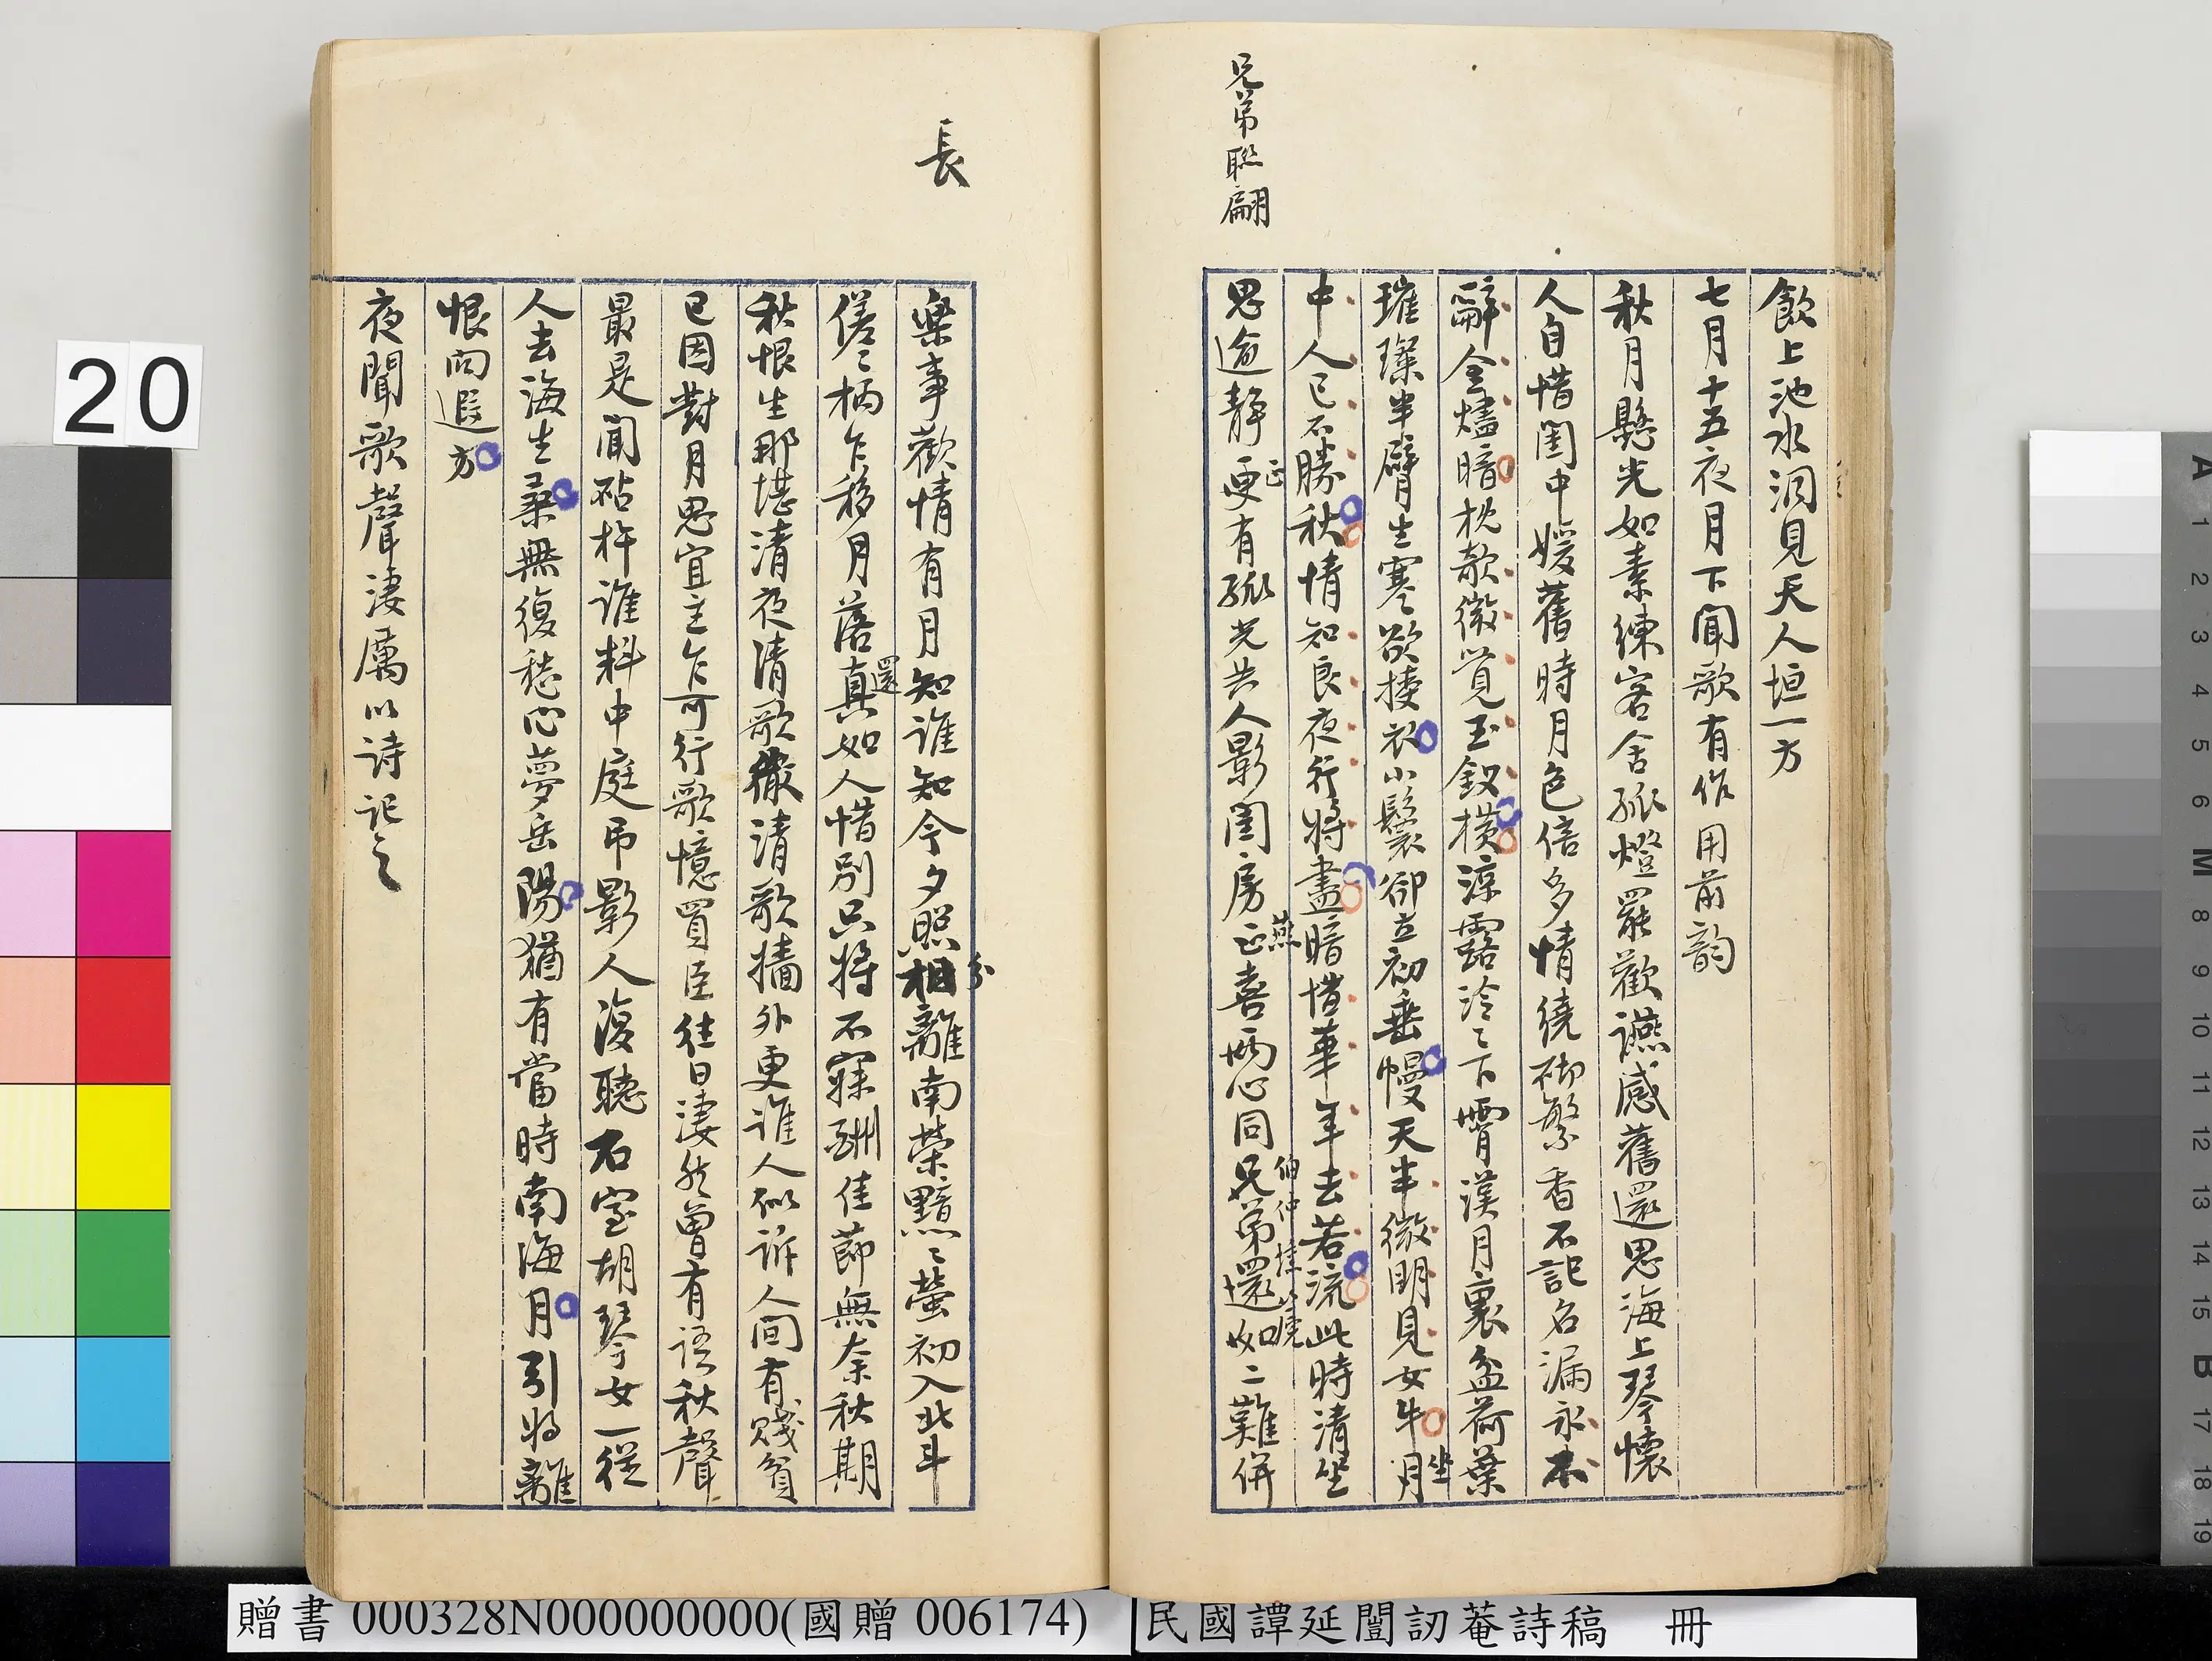 兄弟聯翩
飲上池水洞見天人垣一方
七月十五夜月下聞歌有作用前韵
秋月懸光如素練客舍孤燈罷歡讌感舊還思海上琴懷
人自惜閨中媛舊時月色倍多情繞砌繁香不記名漏永
辭金燼暗枕欹微覺玉釵橫涼露泠〻下霄漢月裏盆荷葉
璀璨半臂生寒欲換衣小鬟卻立初垂幔天半微明見女牛月
坐
中人已不勝秋情知良夜行將盡暗惜華年去若流此時清坐
思逾靜更有孤光共人影閨房正喜兩心同兄弟還如二難併
正
燕
伯仲
長
樂事歡情有月知誰知今夕照相離南榮黯〻螢初入北斗
分
倭〻柄乍移月落真如人惜別只將不寐酬佳節無奈秋期
還
秋恨生那堪清夜清歌徹清歌牆外更誰人似訴人間有賤貧
已因對月思宜主乍可行歌憶買臣往日淒然曾有語秋聲
最是聞砧杵誰料中庭弔影人復聽石室胡琴女一從
人去海生桑無復愁心夢岳陽猶有當時南海月引將離
恨向遐方
夜聞歌聲淒厲以詩記之
20
贈書 000328N000000000(國贈 006174)
民國譚延闓訒菴詩稿 冊
A 1 2 3 4 5 6 M 8 9 10 11 12 13 14 15 B 17 18 19